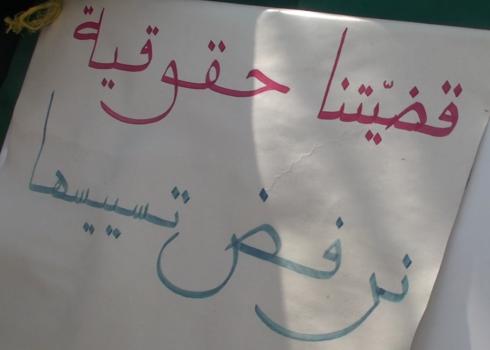 قضيّتنا حقوقية
نرفض تسييسها